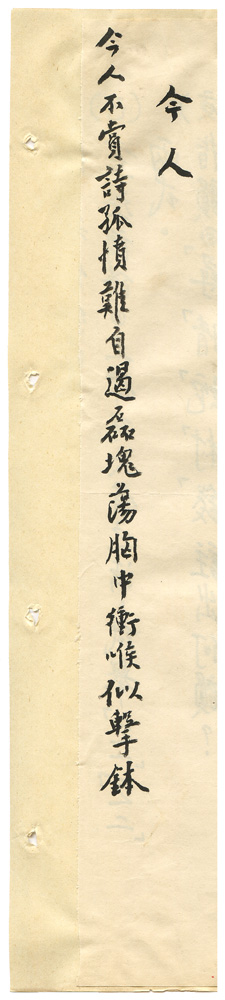 今人
今人不賞詩孤憤難自遏磊塊蕩胸中衝喉似擊鉢